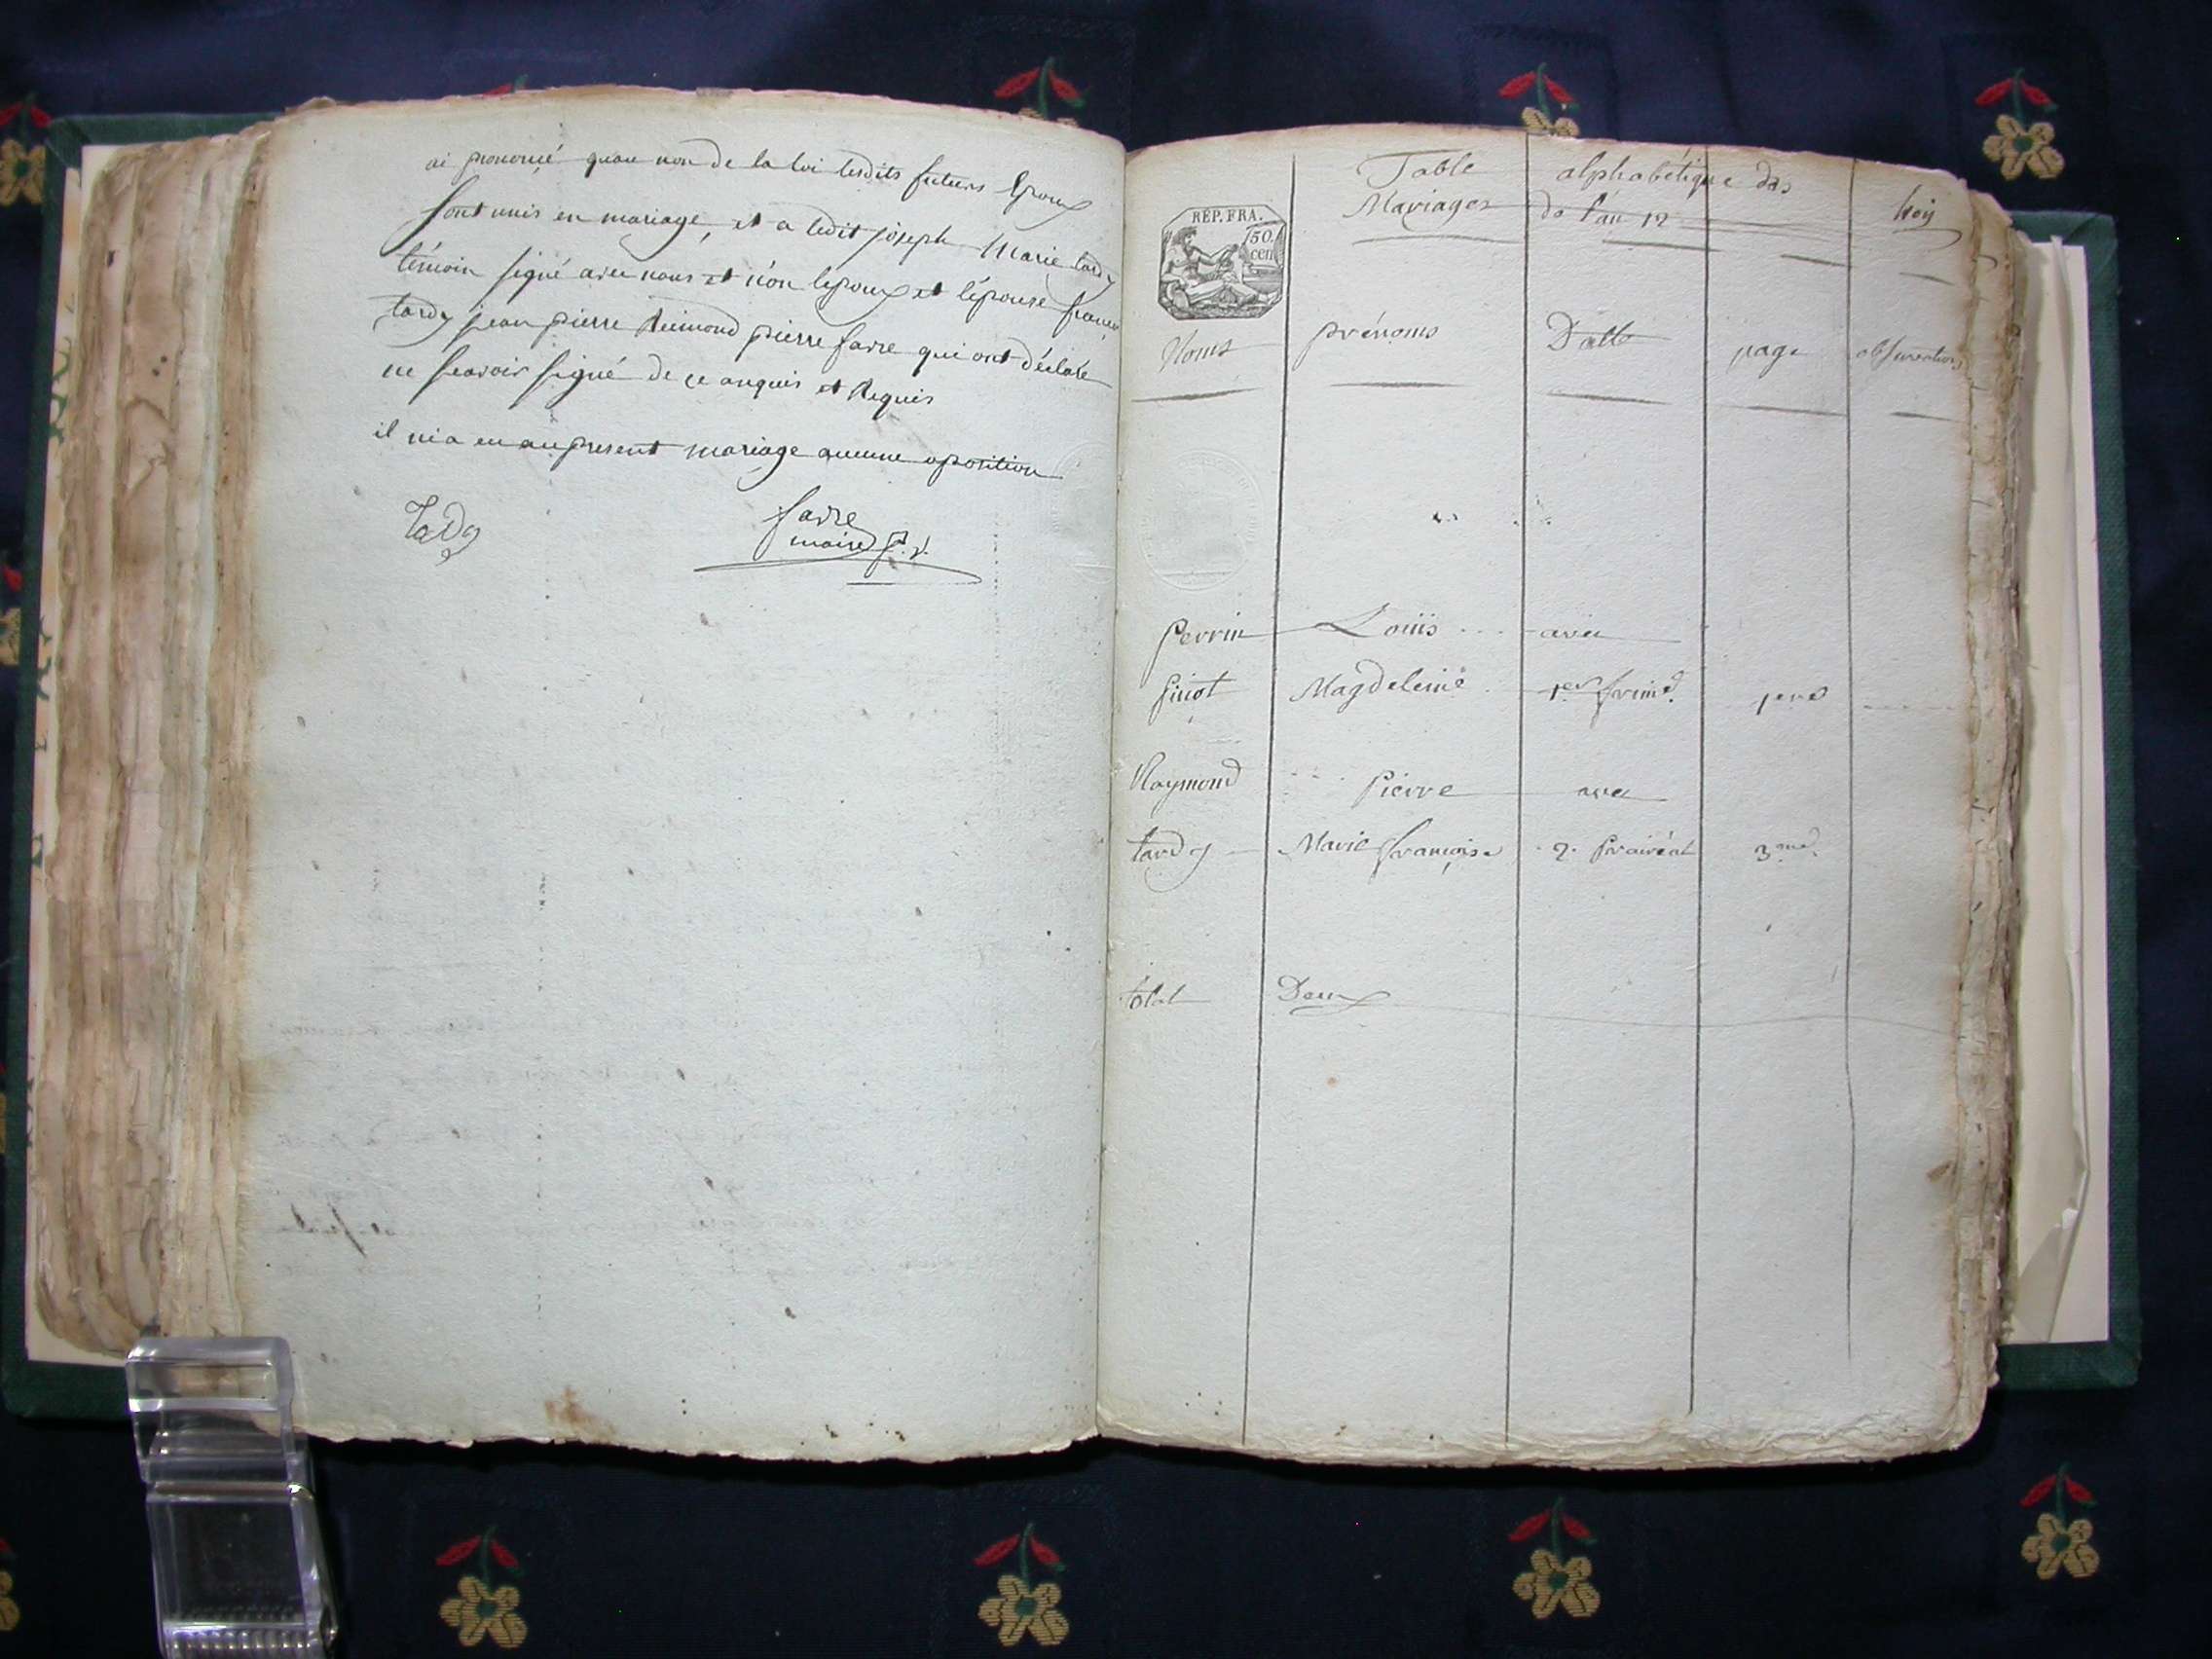 ai prononcé quau non de la loi lesdits futurs Epoux
sont unis en mariage, et a ledit joseph Marie tardy
témoin signé avec nous et n'on lepoux et lépouse francois
tardy jean pierre Reimond pierre favre qui ont déclaré
ne seavoir signé de ce anquis et Requis
il ni a eu au present mariage aucune oposition
tady
favre
maire
Table alphabétique des
Mariages de l'an 12
RÉP. FRA.
50
cen
Noms prénoms Datte page observations
Perrin Loüis avec
Magdeleine 1er frim.e
Raymond Pierre avec
tardy Marie françoise 2 Prairéal 3.me
total Deux